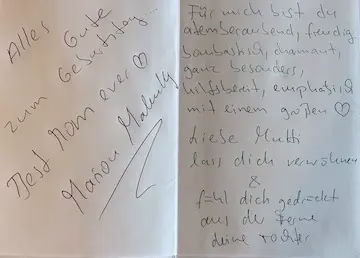 Alles Gute
zum Geburtstag...
Best Mom ever ♡
Marion
Für mich bist du
atemberaubend, freudig
bombastisch, diamant,
ganz besonders,
hilfsbereit, emphatisch
mit einem großen ♡
Liebe Mutti
lass dich verwöhnen
&
fühl dich gedrückt
aus der Ferne
deine Tochter